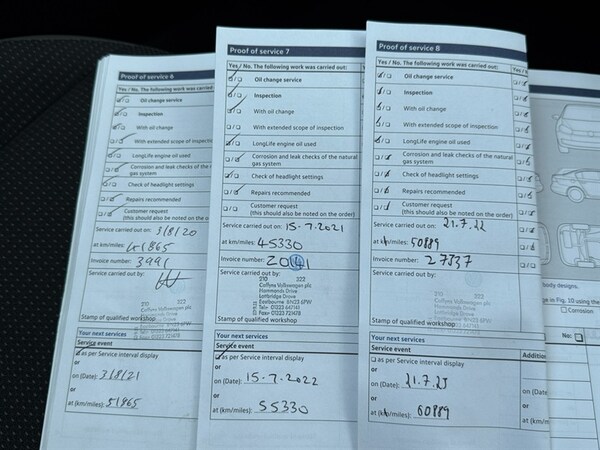 Proof of service 6
Yes / No. The following work was carried out:
Oil change service
Inspection
With oil change
With extended scope of inspection
LongLife engine oil used
Corrosion and leak checks of the
gas system
Check of headlight settings
Repairs recommended
Customer request
(this should also be noted on the order)
Service carried out on: 3/8/20
at km/miles: 41865
Invoice number: 3991
Service carried out by:
210 322
Caffyns Volkswagen plc
Hammonds Drive
Lottbridge Drove
Eastbourne BN23 6PW
Tele: 01323 647141
Fax: 01323 721478
Stamp of qualified workshop
Your next services
Service event
as per Service interval display
or
on (Date): 3/8/21
or
at (km/miles): 51865
Proof of service 7
Yes / No. The following work was carried out:
Oil change service
Inspection
With oil change
With extended scope of inspection
LongLife engine oil used
Corrosion and leak checks of the natural
gas system
Check of headlight settings
Repairs recommended
Customer request
(this should also be noted on the order)
Service carried out on: 15-7-2021
at km/miles: 45330
Invoice number:
Service carried out by:
210 322
Caffyns Volkswagen plc
Hammonds Drive
Lottbridge Drove
Eastbourne BN23 6PW
Tele: 01323 647141
Fax: 01323 721478
Stamp of qualified workshop
Your next services
Service event
as per Service interval display
or
on (Date): 15-7-2022
or
at (km/miles): 55330
Proof of service 8
Yes / No. The following work was carried out:
Yes / N
Oil change service
Inspection
With oil change
With extended scope of inspection
LongLife engine oil used
Corrosion and leak checks of the natural
gas system
Check of headlight settings
Repairs recommended
Customer request
(this should also be noted on the order)
Service carried out on: 21.7.22
at km/miles: 50889
Invoice number: 27337
Service carried out by:
210 322
Caffyns Volkswagen plc
Hammonds Drive
Stamp of qualified workshop
Your next services
Service event
Additio
as per Service interval display
or
on (Date): 21.7.23
or
at (km/miles): 60889
body designs.
in Fig. 10 using the
Corrosion
No: